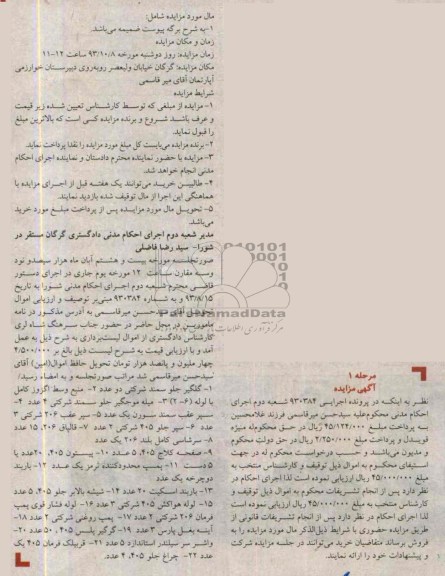 مرحله ۱
آگهی مزایده
نظر به اینکه در پرونده اجرایی ۹۳۰۳۸۴ شعبه دوم اجرای
احکام مدنی محکوم‌علیه سیدحسن میرقاسمی فرزند غلامحسین
به پرداخت مبلغ ۴۵/۱۲۴/۰۰۰ ریال در حق محکوم‌له میژه
قویدل و پرداخت مبلغ ۲/۲۵۰/۰۰۰ ریال در حق دولت محکوم
و مدیون می‌باشد و حسب درخواست محکوم له در جهت
استیفای محکوم به اموال ذیل توقیف و کارشناس منتخب به
مبلغ ۴۵/۰۰۰/۰۰۰ ریال ارزیابی نموده است لذا اجرای احکام در
نظر دارد پس از انجام تشریفات محکوم به اموال ذیل توقیف و
کارشناس منتخب به مبلغ ۴۵/۰۰۰/۰۰۰ ریال ارزیابی نموده است
لذا اجرای احکام در نظر دارد پس از انجام تشریفات قانونی از
طریق مزایده حضوری با شرایط ذیل‌الذکر مال مورد مزایده را به
فروش برساند متقاضیان خرید می‌توانند در جلسه مزایده شرکت
و پیشنهادات خود را ارائه نمایند.
مال مورد مزایده شامل:
۱-به شرح برگه پیوست ضمیمه می‌باشد.
زمان و مکان مزایده
زمان مزایده: روز دوشنبه مورخه ۹۳/۱۰/۸ ساعت ۱۲-۱۱
مکان مزایده: گرگان خیابان ولیعصر روبه‌روی دبیرستان خوارزمی
آپارتمان آقای میر قاسمی
شرایط مزایده
۱- مزایده از مبلغی که توسط کارشناس تعیین شده زیر قیمت
و عرف باشد شروع و برنده مزایده کسی است که بالاترین مبلغ
را قبول نماید.
۲- برنده مزایده می‌بایست کل مبلغ مورد مزایده را نقدا پرداخت نماید.
۳- مزایده با حضور نماینده محترم دادستان و نماینده اجرای احکام
مدنی انجام خواهد شد.
۴- طالبین خرید می‌توانند یک هفته قبل از اجرای مزایده با
هماهنگی این اجرا از مال توقیف شده بازدید نمایند.
۵- تحویل مال مورد مزایده پس از پرداخت مبلغ مورد خرید
می‌باشد.
مدیر شعبه دوم اجرای احکام مدنی دادگستری گرگان مستقر در
شورا- سید رضا فاضلی
صورتجلسه مورخه بیست و هشتم آبان ماه هزار سیصدو نود
وسه مقارن ساعت ۱۲ مورخه یوم جاری در اجرای دستور
قاضی محترم شعبه دوم اجرای احکام مدنی شورا به تاریخ
۹۳/۸/۱۵ و به شماره ۹۳۰۳۸۴ مبنی‌بر توقیف و ارزیابی اموال
تحویل آقای سیدحسن میرقاسمی به آدرس مذکور در نامه
مامورین در محل حاضر در حضور جناب سرهنگ شاه لری
کارشناس دادگستری از اموال لیست‌برداری به شرح ذیل به عمل
آمد و با ارزیابی قیمت به شرح لیست ذیل بالغ بر ۴/۵۰۰/۰۰۰
چهار ملیون و پانصد هزار تومان تحویل حافظ اموال(امین) آقای
سیدحسن میرقاسمی شد مراتب صورتجلسه و به امضاء رسید/
۱- گلگیر جلو سمند شرکتی دو عدد ۲- منبع وسط اگزوز کامل
با لوله (۶-۲) ۳- میله موجگیر جلو سمند شرکتی ۴ عدد ۴-
سپر عقب سمند سورن یک عدد ۵- سپر عقب ۲۰۶ شرکتی ۳
عدد ۶- سپر جلو ۴۰۵ شرکتی ۲ عدد ۷- قالپاق ۲۰۶، ۱۵ عدد
۸- سرشاسی کامل بلند ۲۰۶ یک عدد
۹- صفحه کلاج ۴۰۵، ۵ عدد ۱۰- پیستون ۴۰۵، ۲۰عدد یا
۵ دست ۱۱- پمپ محدودکننده ترمز یک عدد ۱۲- باربند
دوچرخه یک عدد
۱۳- باربند اسکیت ۲۰ عدد ۱۴- شیشه بالابر جلو ۴۰۵، ۵ عدد
۱۵- لوله هواکش ۴۰۵ شرکتی ۳ عدد ۱۶- لوله فشار قوی پمپ
فرمان ۲۰۶ شرکتی ۲ عدد ۱۷- پمپ روغنی شرکتی ۲ عدد ۱۸-
آینه بغل پارس ۳ عدد ۱۹- گوگیر پلیس ۴۰۵، ۵۰ عدد ۲۰-
واشر سر سیلندر استاندارد ۵ عدد ۲۱- قربیلک فرمان ۴۰۵ یک
عدد ۲۲- چراغ جلو ۴۰۵، ۴ عدد.